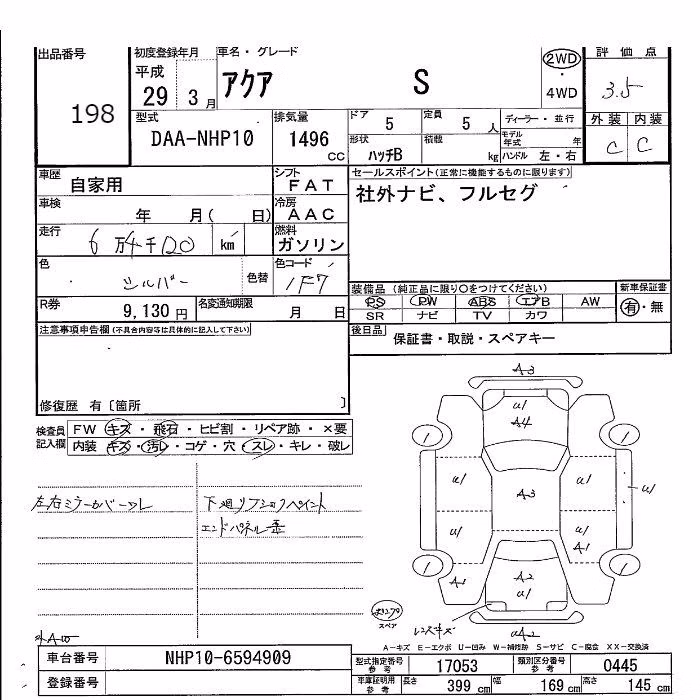 出品番号 初度登録年月 車名・グレード 評価点
198
平成 29 3月
アクア S
2WD・4WD
3.5
外装 内装
C C
型式 DAA-NHP10
排気量 1496 cc
ドア 5
定員 5 人
形状 ハッチB
積載 kg
ディーラー・並行
モデル年式 年
ハンドル 左・右
車歴 自家用
シフト FAT
セールスポイント(正常に機能するものに限ります)
社外ナビ、フルセグ
車検 年 月( 日)
冷房 AAC
走行 6万4千120 km
燃料 ガソリン
色 シルバー 色替
色コード 1F7
装備品(純正品に限り○をつけてください) 新車保証書
PS PW ABS エアB AW 有・無
SR ナビ TV カワ
R券 9,130円
名変通知期限 月 日
後日品 保証書・取説・スペアキー
注意事項申告欄(不具合内容等は具体的に記入して下さい)
修復歴 有〔箇所 〕
検査員記入欄
FW キズ・飛石・ヒビ割・リペア跡・×要
内装 キズ・汚レ・コゲ・穴・スレ・キレ・破レ
左右ミラーカバーズレ
下廻リフショクペイント
エンドパネル歪
外AW
A-3
U1
A4
1 1
U1 A-3 U1 U1
U1 U1
A-1
A-1 A-2
U1
1 1
スペア
レンズキズ
UA-2
A-キズ E-エクボ U-凹み W-補修跡 S-サビ C-腐食 XX-交換済
車台番号 NHP10-6594909
登録番号
型式指定番号参考 17053
類別区分番号参考 0445
車庫証明用参考 長さ 399 cm 幅 169 cm 高さ 145 cm